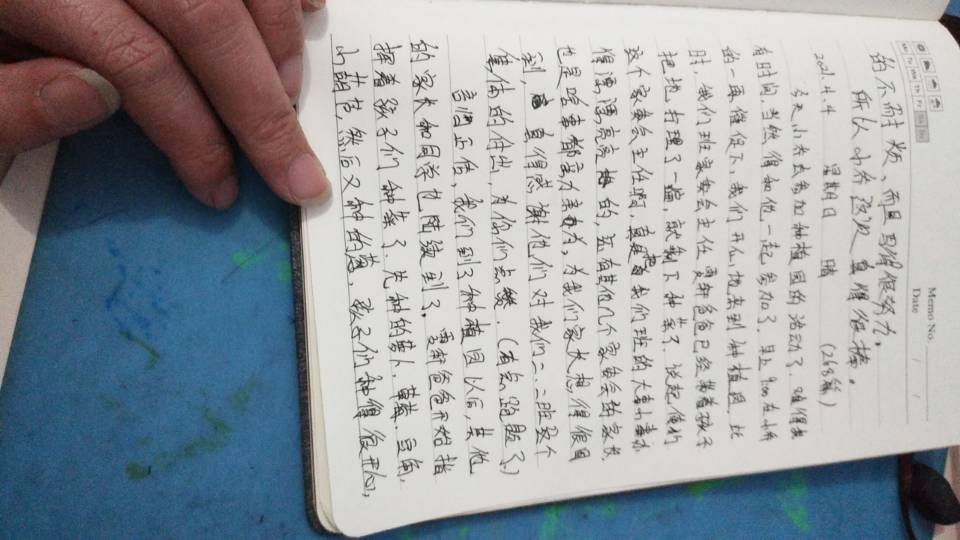 Memo No.
Date / /
的不耐烦,而且写得很努力,
所以小齐孩及真得很棒。
2021.4.4 星期日 晴 (268篇)
今天小齐去参加种植园的活动了,难得爸
有时间,当然得和他一起参加了,早上9:00在小齐
的一再催促下,我们开心地来到种植园,此
时,我们班家委会主任雯轩爸爸已经带着孩子
把地打理了一遍,就剩下种菜了,说起俺的
这个家委会主任啊,真是把我们班的大事小事办
得漂漂亮亮的,还有其他几个家委会的家长
也是啥事都亲力亲为,为我们家长想得很周
到,真得感谢他们对我们二.二班这个
集体的付出,为你们点赞.(有点跑题了)
言归正传,我们到了种植园以后,其他
的家长和同学也陆续到了,雯轩爸爸开始指
挥着孩子们种菜了,先种的萝卜、草莓、豆角、
小茴香,然后又种的葱,孩子们种得很开心,